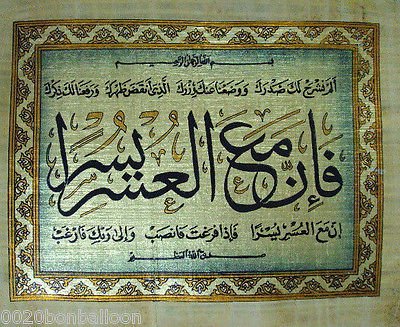 بسم الله الرحمن الرحيم
ألم نشرح لك صدرك ووضعنا عنك وزرك الذي أنقض ظهرك ورفعنا لك ذكرك
فَإِنَّ مَعَ الْعُسْرِ يُسْرًا
إن مع العسر يسرا فإذا فرغت فانصب وإلى ربك فارغب
صدق الله العظيم
©0020bonballoon